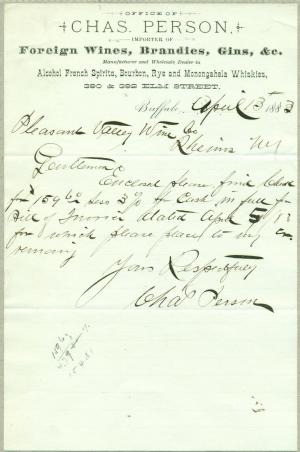 OFFICE OF
CHAS. PERSON,
IMPORTER OF
Foreign Wines, Brandies, Gins, &c.
Manufacturer and Wholesale Dealer in
Alcohol French Spirits, Bourbon, Rye and Monongahela Whiskies,
390 & 392 ELM STREET.
Buffalo, April 13 1883
Pleasant Valley Wine Co
Rheims NY
Gentlemen
Enclosed please find Check
for 159 60 less 3% for Cash in full for
Bill of Invoice dated April 5
for which please place to my cr.
remaining
Yours Respectfully
Chas Person
159 60